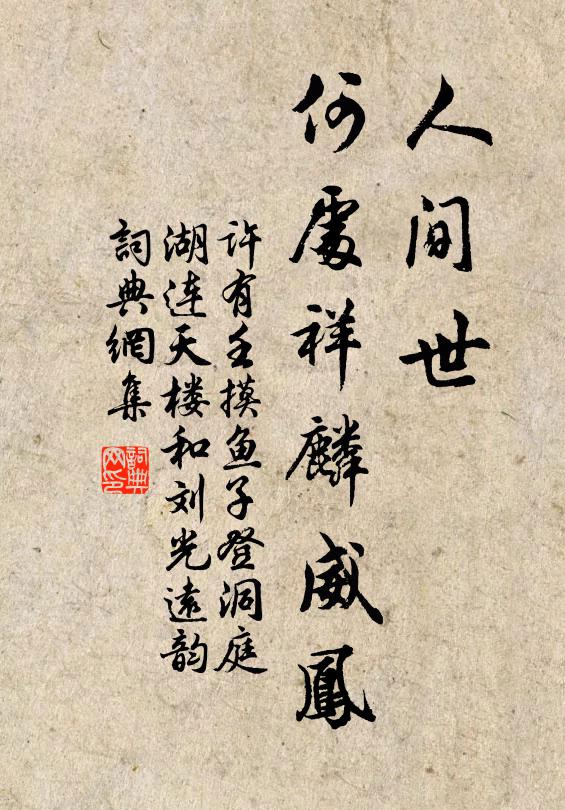 人间世
何處祥麟威鳳
许有壬摸鱼子登洞庭
湖连天楼和刘光遠韵
詞典網集
詞典
网印